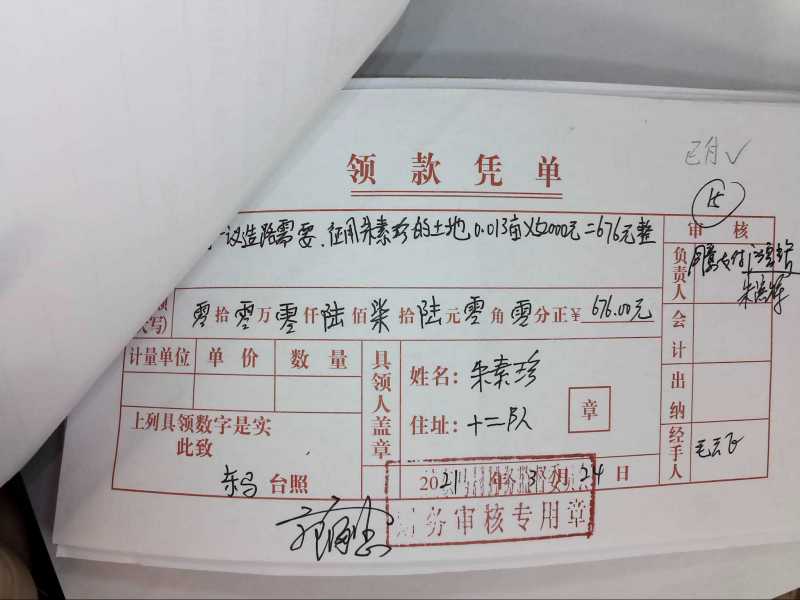 已付√
领款凭单
15
一议造路需要,征用朱素珍的土地0.013亩×52000元=676元整
审核
负责人
写)零拾零万零仟陆佰柒拾陆元零角零分正¥676.00元
会计
计量单位 单价 数量
具领人盖章
姓名:朱素珍
章
住址:十二队
出纳
上列具领数字是实
此致
台照
经手人
2021年3月24日
财务审核专用章